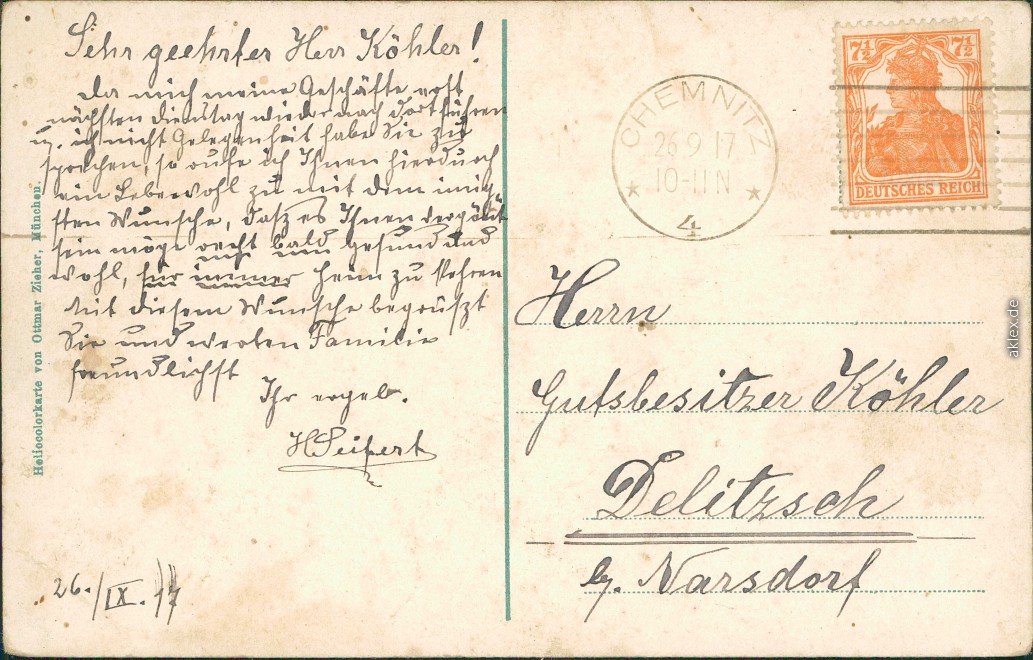 Sehr geehrter Herr Köhler!
Da mich meine Geschäfte erst
nächsten Dienstag wieder nach dort führen
u. ich nicht Gelegenheit habe Sie zu
sprechen, so rufe ich Ihnen hierdurch
ein Lebewohl zu mit dem innig-
sten Wunsche, dasz es Ihnen vergönnt
sein möge recht bald gesund und
wohl, für immer heim zu kehren
Mit diesem Wunsche begrüszt
Sie und werten Familie
freundlichst
Ihr ergeb.
H Seifert
26./IX. 17
Heliocolorkarte von Ottmar Zieher, München.
CHEMNITZ
26.9 17
10-11 N
4
7½ 7½
DEUTSCHES REICH
Herrn
Gutsbesitzer Köhler
Delitzsch
b. Narsdorf
aklex.de